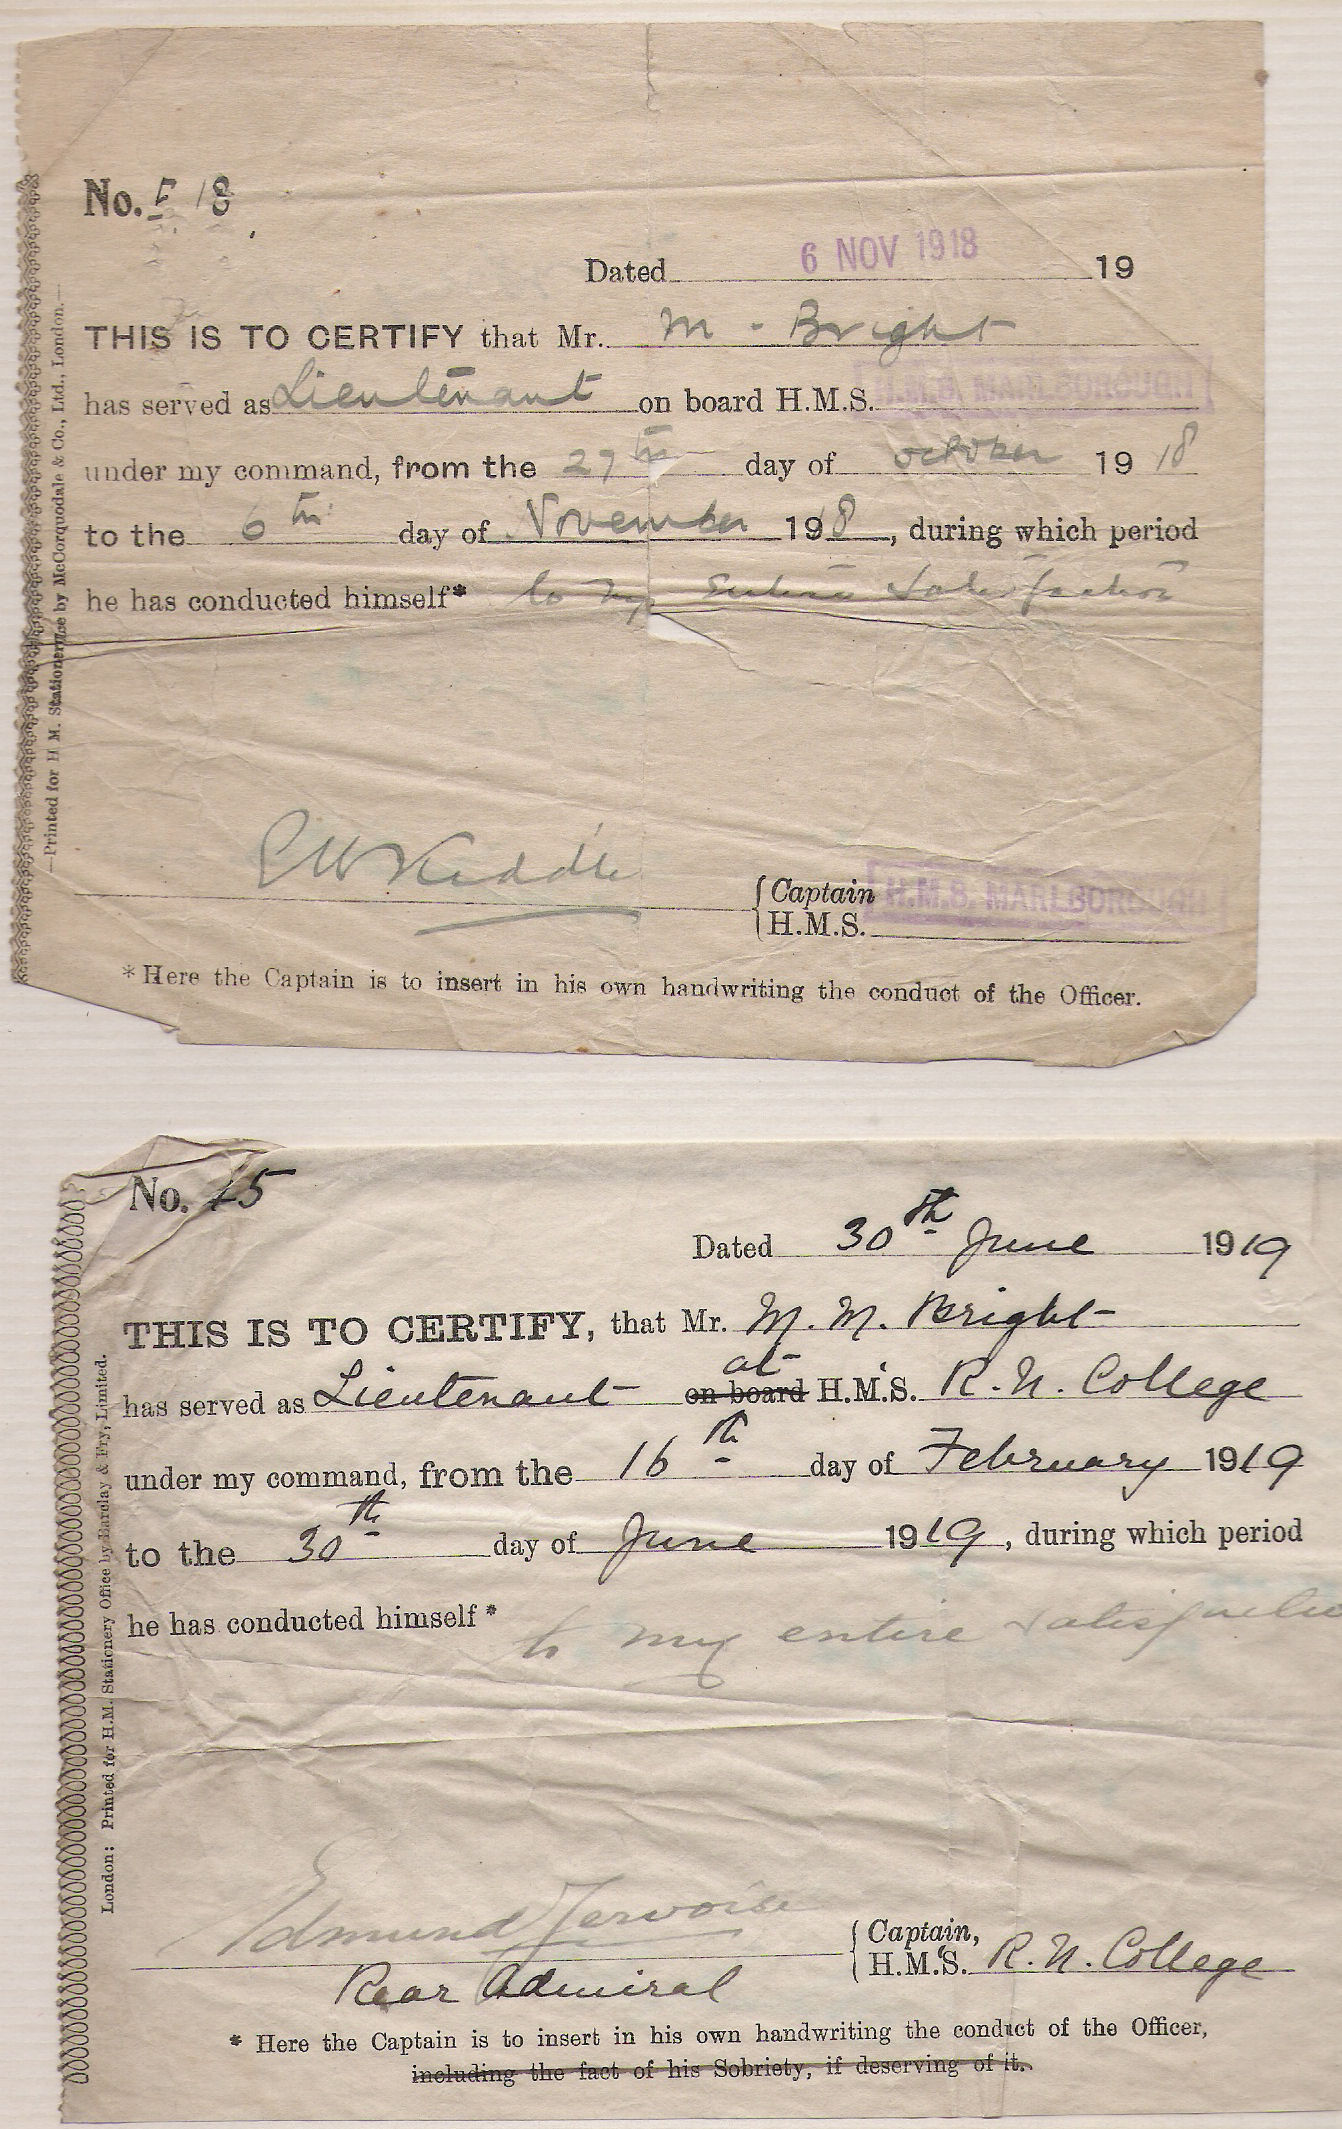 No. 18
Dated 6 NOV 1918 19
THIS IS TO CERTIFY that Mr. M - Bright
has served as Lieutenant on board H.M.S. H.M.S. MARLBOROUGH
under my command, from the 27th day of October 19 18
to the 6th day of November 19 18, during which period
he has conducted himself* to my Entire Satisfaction
{Captain H.M.S. MARLBOROUGH
H.M.S.
*Here the Captain is to insert in his own handwriting the conduct of the Officer.
—Printed for H. M. Stationery by McCorquodale & Co., Ltd., London.—
No. 15
Dated 30th June 1919
THIS IS TO CERTIFY, that Mr. M. M. Bright
at
has served as Lieutenant on board H.M.S. R. N. College
under my command, from the 16th day of February 1919
to the 30th day of June 1919, during which period
he has conducted himself* to my entire satisfactio
Edmund Jervoise
Rear Admiral
{Captain,
H.M.S. R. N. College
* Here the Captain is to insert in his own handwriting the conduct of the Officer,
including the fact of his Sobriety, if deserving of it.
London: Printed for H.M. Stationery Office by Barclay & Fry, Limited.